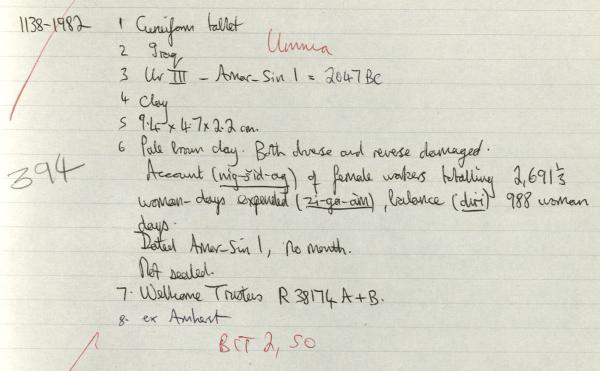 1138-1982 1 Cuneiform tablet
2 Iraq Umma
3 Ur III - Amar-Sin 1 = 2047 BC
4 Clay
5 9.4 x 4.7 x 2.2 cm.
6 Pale brown clay. Both obverse and reverse damaged.
394 Account (nig-šid-ag) of female workers totalling 2,691⅓
woman-days expended (zi-ga-àm), balance (diri) 988 woman
days.
Dated Amar-Sin 1, no month.
Not sealed.
7. Wellcome Trustees R 38174 A+B.
8. ex Amherst
BCT 2, 50